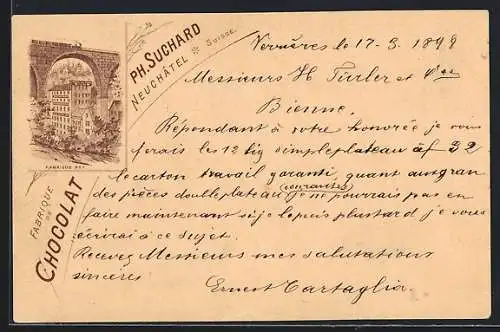 PH. SUCHARD
NEUCHÂTEL * SUISSE.
FABRIQUE
FABRIQUE DE
CHOCOLAT
Verrières le 17-3. 1899
Messieurs H Türler et
Bienne.
Répondant à votre honorée je vous
ferais les 12 simpleplateau à f 32
le carton travail garanti, quant aux gran
des pièces doubleplateau (courantes) je ne pourrais pas en
faire maintenant si je le puis plustard je vous
écrirai à ce sujet.
Recevez Messieurs mes salutations
sincères
Ernest Cartaglia.